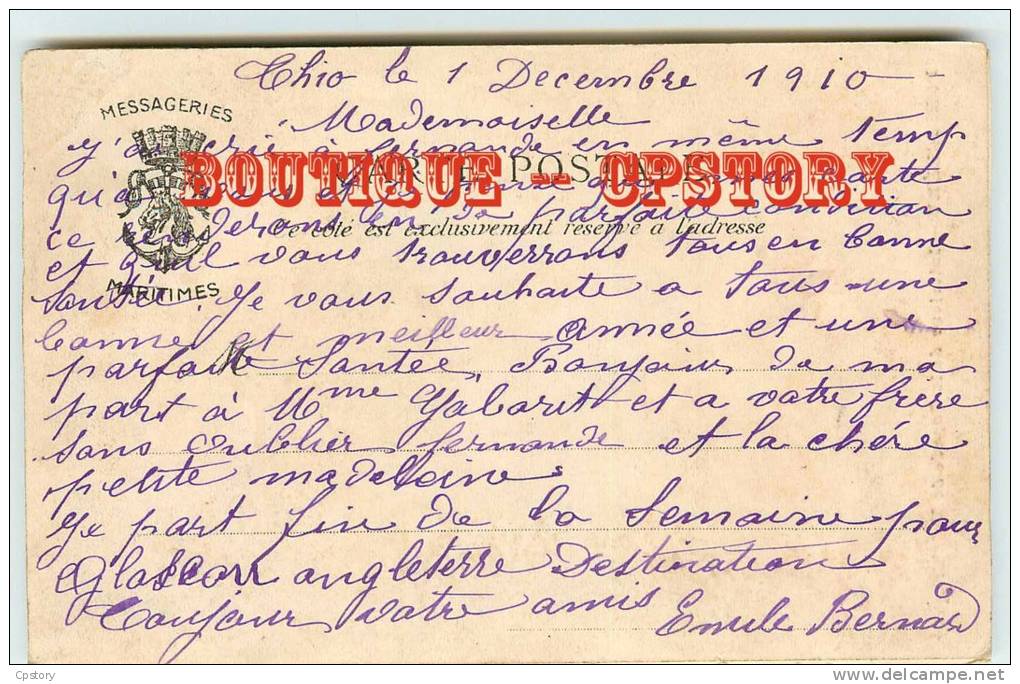 Thio le 1 Decembre 1910
MESSAGERIES
Mademoiselle
j'ai ecrié à fernande en même temp
BOUTIQUE -- CPSTORY
CARTE POSTALE
qu'à vous et que mes carte
Ce côté est exclusivement réservé à l'adresse
ce parfaite
et qu'il vous trouverrons tous en bonne
MARITIMES
santée. Je vous souhaite a tous une
bonne et meilleur année et une
parfaite Santée, Bonjour de ma
part à Mme Gabarit et a votre frère
sans oublier fernande et la chére
petite madeleine
Je part fin de la Semaine pour
Glascou angleterre Destination
Toujour votre amis Emile Bernard
Cpstory
http://www.delcampe.net